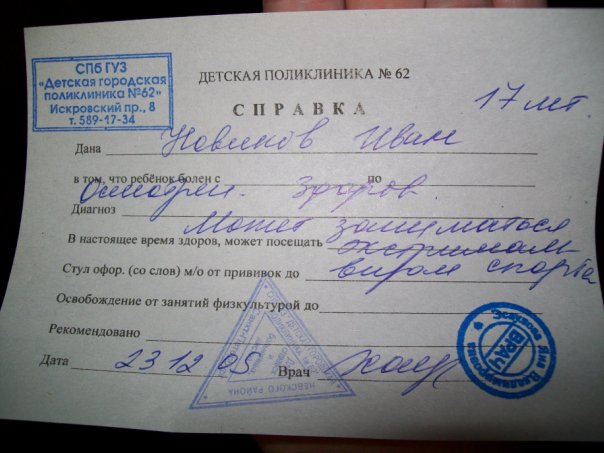 СПб ГУЗ
«Детская городская
поликлиника №62»
Искровский пр., 8
т. 589-17-34
ДЕТСКАЯ ПОЛИКЛИНИКА № 62
СПРАВКА
17 лет
Дана Новиков Иван
в том, что ребёнок болен с по
Осмотрен. Здоров.
Диагноз
Может заниматься
В настоящее время здоров, может посещать экстремаль
Стул офор. (со слов) м/о от прививок до видом спорта
Освобождение от занятий физкультурой до
Рекомендовано
Дата 23 12 05 Врач
ВРАЧ
НЕВСКОГО РАЙОНА